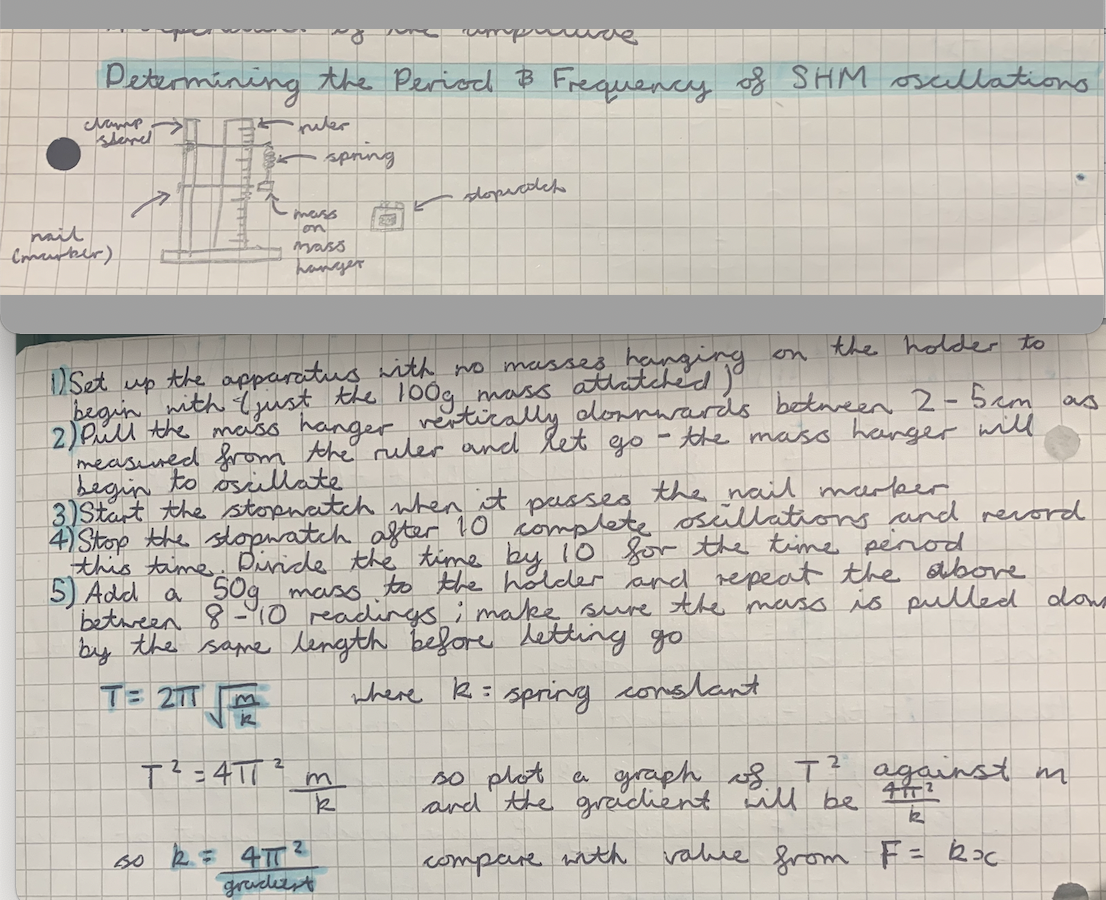 of the amplitude
Determining the Period & Frequency of SHM oscillations
clamp
stand
ruler
spring
stopwatch
nail
(marker)
mass
on
mass
hanger
1) Set up the apparatus with no masses hanging on the holder to
begin with (just the 100g mass attatched)
2) Pull the mass hanger vertically downwards between 2-5cm as
measured from the ruler and let go - the mass hanger will
begin to oscillate
3) Start the stopwatch when it passes the nail marker
4) Stop the stopwatch after 10 complete oscillations and record
this time. Divide the time by 10 for the time period
5) Add a 50g mass to the holder and repeat the above
between 8-10 readings ; make sure the mass is pulled down
by the same length before letting go
T = 2π √(m/k) where k = spring constant
T² = 4π² m/k so plot a graph of T² against m
and the gradient will be 4π²/k
so k = 4π²/gradient compare with value from F = kx